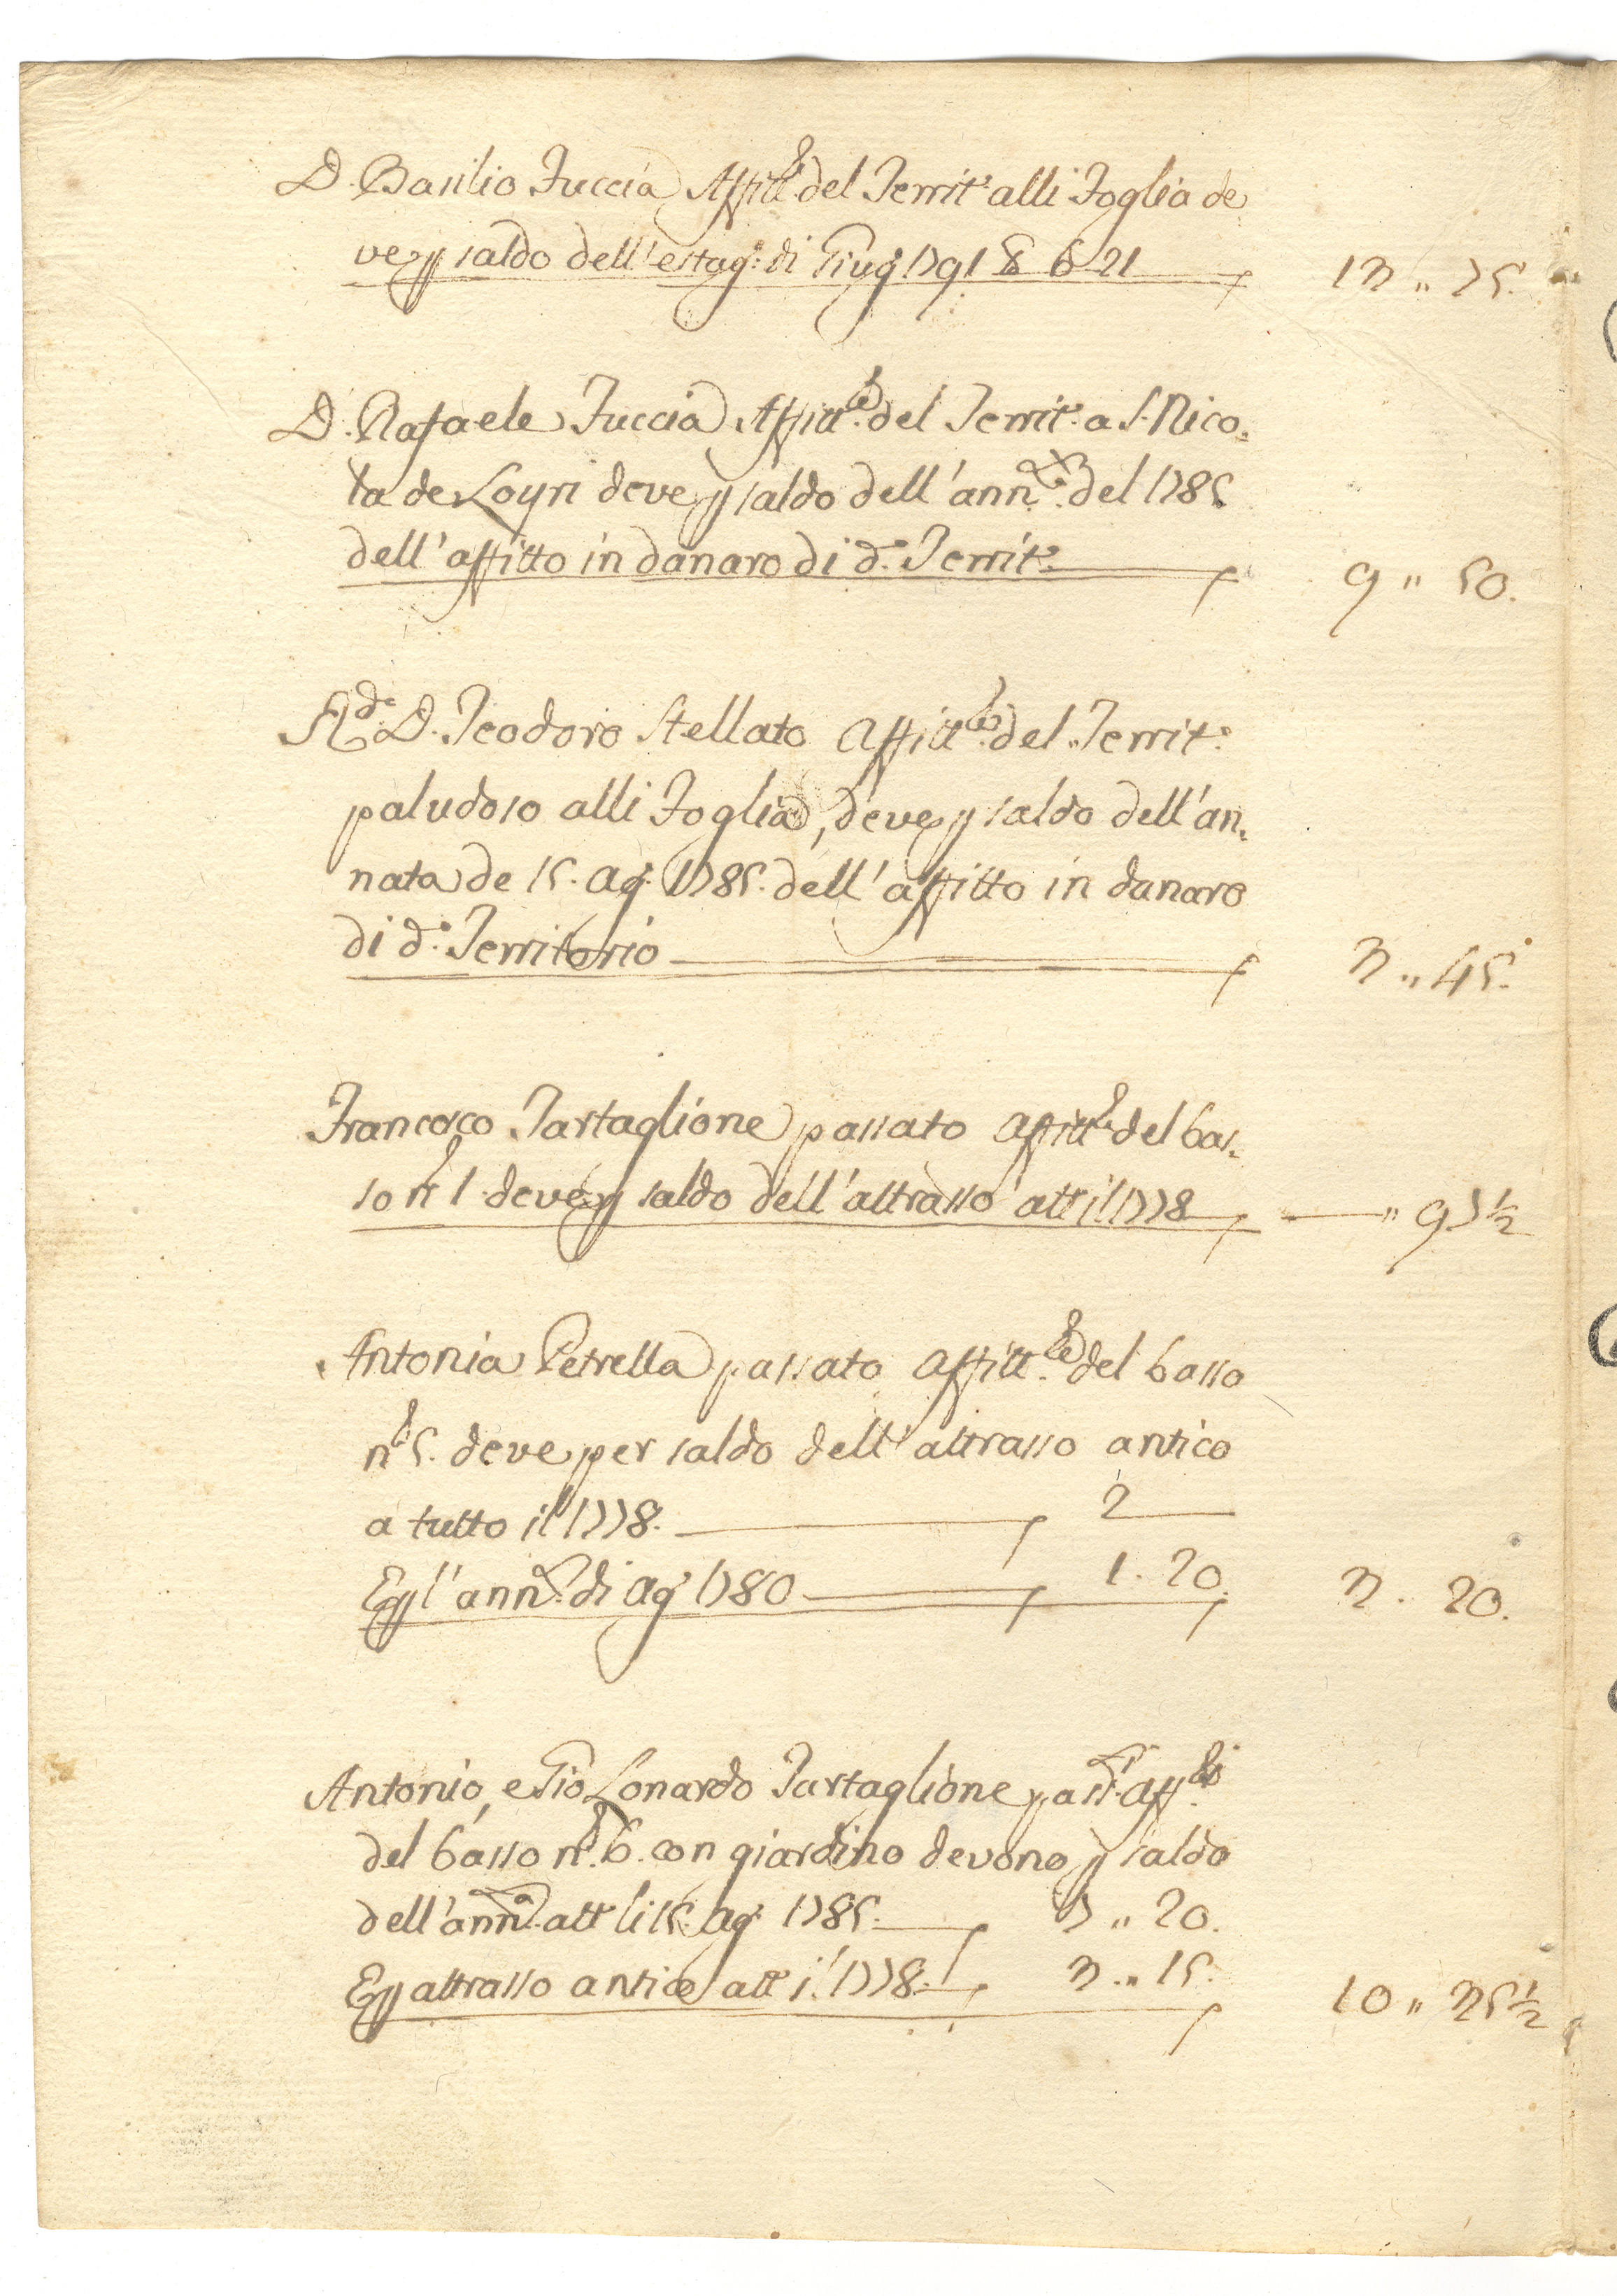 D. Basilio Iuccia Affitt.e del Territ.o alli Foglia de
ve p saldo dell'estag.e di Giug.o 1791 6 21 13 „ 75.
D. Rafaele Iuccia Affitt.e del Territ.o a S. Nico=
la de Loyri deve p saldo dell'ann.ta del 1785
dell'affitto in danaro di d.o Territ.o 9 „ 50.
R.do D. Teodoro Stellato Affitt.e del Territ.o
paludoso alli Foglia, deve p saldo dell'an=
nata de 15. Ag.o 1785. dell'affitto in danaro
di d.o Territorio 3 „ 45.
Francesco Tartaglione passato Affitt.e del bas=
so n.o 1. deve p saldo dell'attrasso att.o il 1778 „ 97 ½
Antonia Petrella passato Affitt.e del basso
n.o 5. deve per saldo dell'attrasso antico
a tutto il 1778. 2
E p l'ann.ta di Ag.o 1780 1. 20. 3. 20.
Antonio, e Gio Lonardo Tartaglione pass.ti Aff.ti
del basso n.o 6. con giardino devono p saldo
dell'ann.ta att.o li 15. Ag.o 1785. 7 „ 20.
E p attrasso antico att.o il 1778. 3 „ 15. 10 „ 35 ½